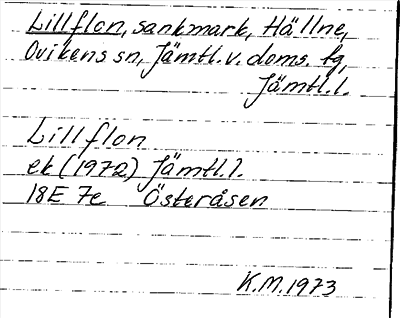 Lillflon, sankmark, Hällne,
Ovikens sn, Jämtl. v. doms. tg,
Jämtl. l.
Lillflon
ek (1972) Jämtl. l.
18E 7e Österåsen
K.M. 1973